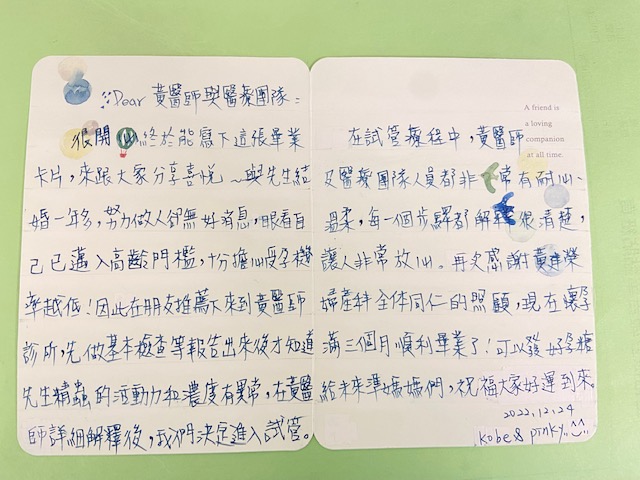 Dear 黃醫師與醫療團隊：
很開心終於能寫下這張畢業
卡片，來跟大家分享喜悅～與先生結
婚一年多，努力做人卻無好消息，眼看自
己已邁入高齡門檻，十分擔心受孕機
率越低！因此在朋友推薦下來到黃醫師
診所，先做基本檢查等報告出來後才知道
先生精蟲的活動力和濃度有異常，在黃醫
師詳細解釋後，我們決定進入試管。
A friend is
a loving
companion
at all time.
在試管療程中，黃醫師
及醫療團隊人員都非常有耐心、
溫柔，每一個步驟都解釋很清楚，
讓人非常放心。再次感謝黃建榮
婦產科全体同仁的照顧，現在懷孕
滿三個月順利畢業了！可以發好孕糖
給未來準媽媽們，祝福大家好運到來。
2022.12.24
kobe & pinky